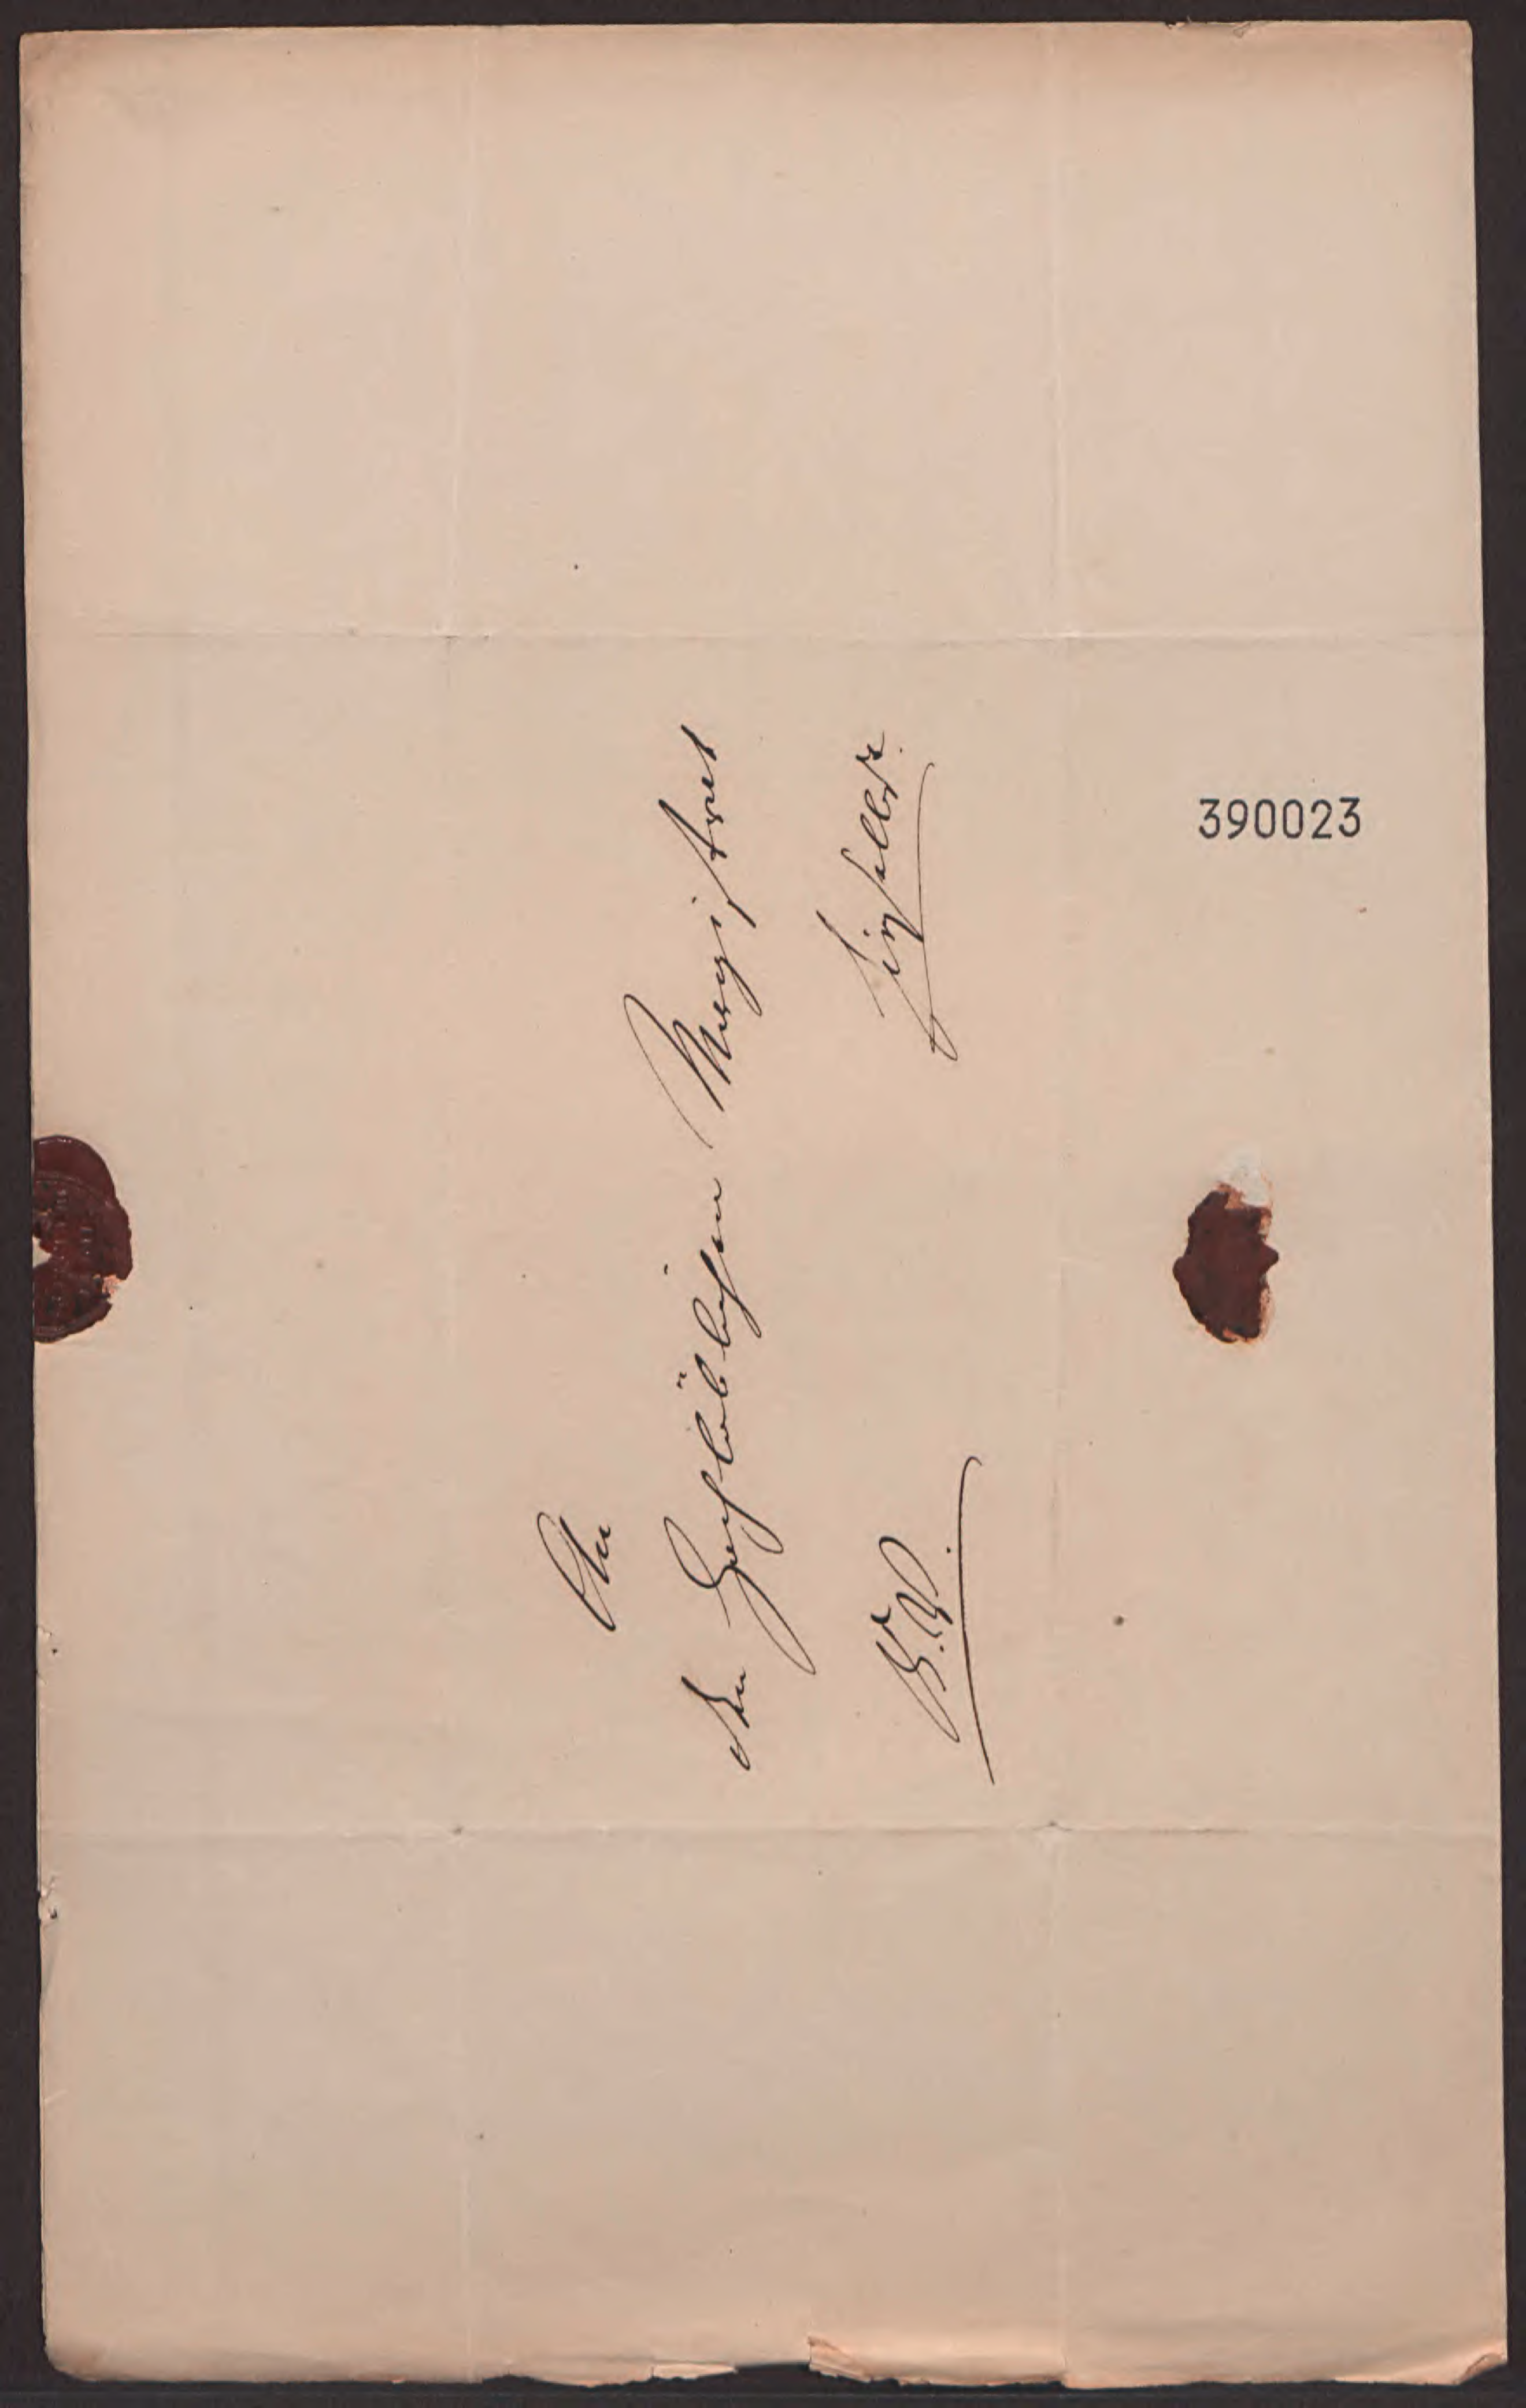 An
den Hochlöblichen Magistrat
hieselbst.
390023